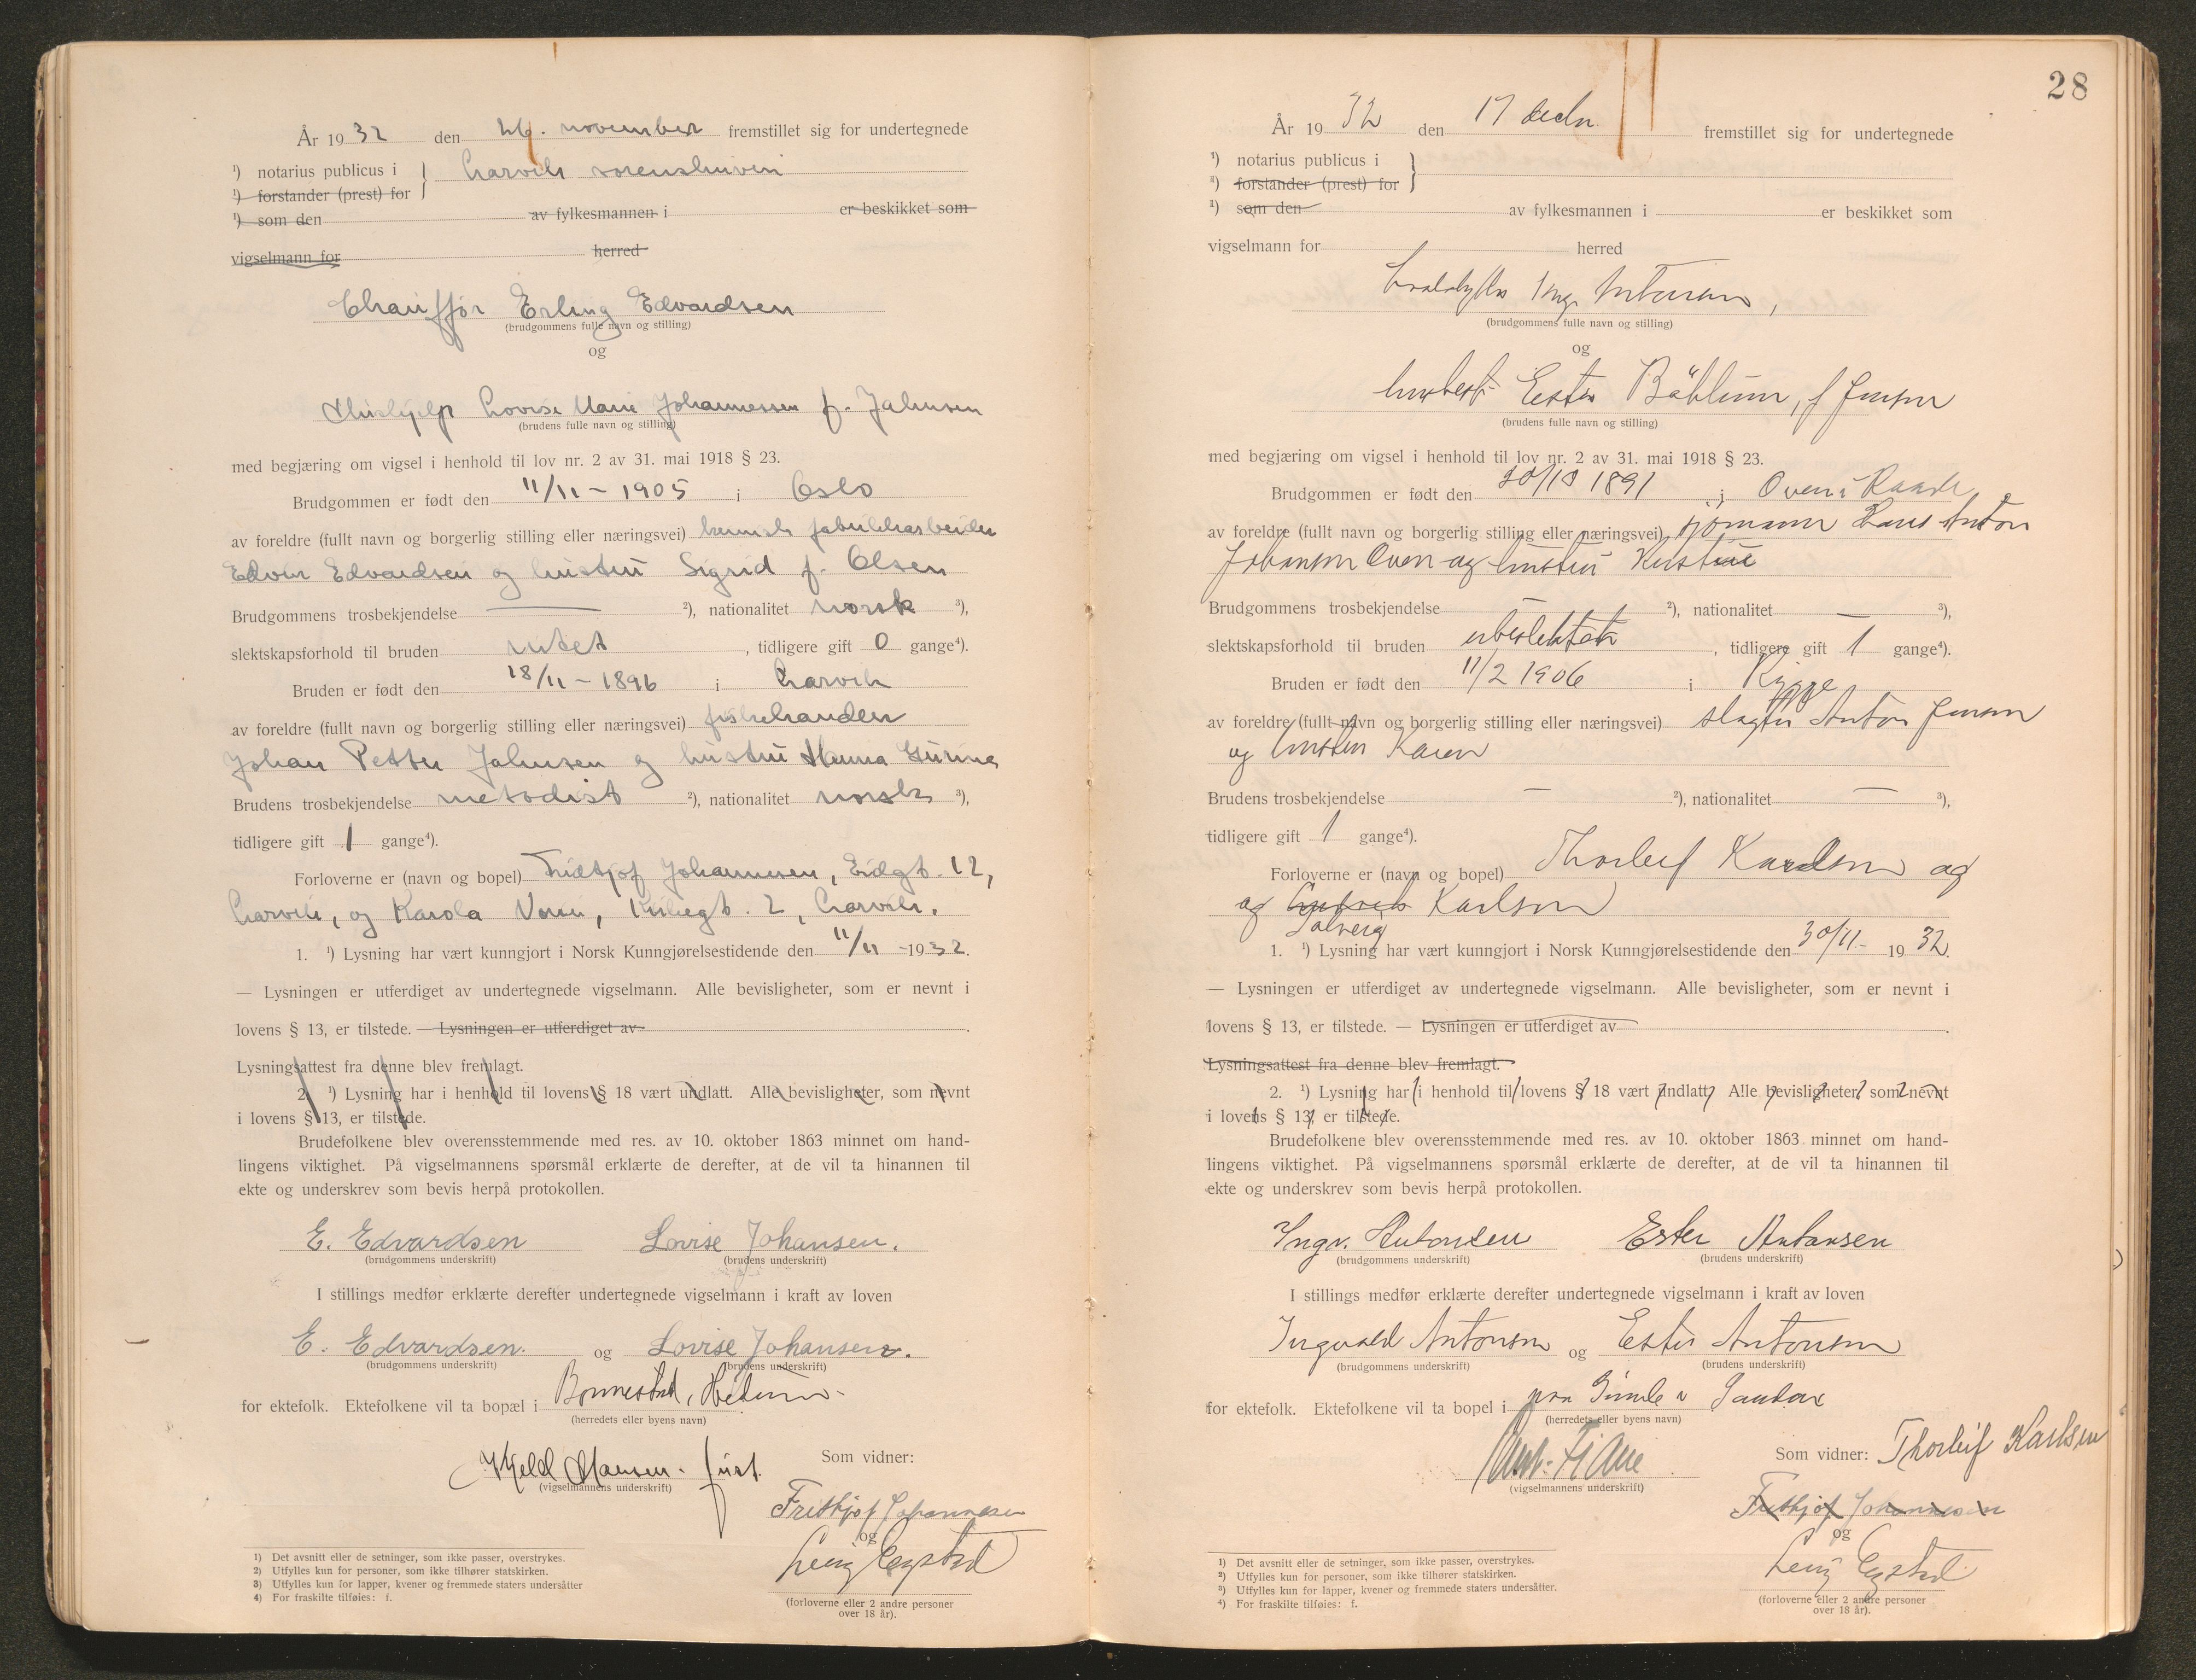 År 1932 den 26. november fremstillet sig for undertegnede
¹) notarius publicus i } Larvik sorenskriveri
¹) forstander (prest) for
¹) som den av fylkesmannen i er beskikket som
vigselmann for herred
Chauffør Erling Edvardsen
(brudgommens fulle navn og stilling)
og
Hushjelp Lovise Marie Johannessen f. Jahnsen
(brudens fulle navn og stilling)
med begjæring om vigsel i henhold til lov nr. 2 av 31. mai 1918 § 23.
Brudgommen er født den 11/11 – 1905 i Oslo
av foreldre (fullt navn og borgerlig stilling eller næringsvei) fabrikkarbeider
Edvin Edvardsen og hustru Sigrid f. Olsen
Brudgommens trosbekjendelse — ²), nationalitet norsk ³),
slektskapsforhold til bruden intet, tidligere gift 0 gange⁴).
Bruden er født den 18/11 – 1896 i Larvik
av foreldre (fullt navn og borgerlig stilling eller næringsvei) fiskehandler
Johan Petter Jahnsen og hustru Hanna Gurine
Brudens trosbekjendelse metodist ²), nationalitet norsk ³),
tidligere gift 1 gange⁴).
Forloverne er (navn og bopel) Fridtjof Johannesen, Eidgt. 12,
Larvik, og Karola 2, Larvik.
1. ¹) Lysning har vært kunngjort i Norsk Kunngjørelsestidende den 11/11 – 1932.
— Lysningen er utferdiget av undertegnede vigselmann. Alle bevisligheter, som er nevnt i
lovens § 13, er tilstede. — Lysningen er utferdiget av .
Lysningsattest fra denne blev fremlagt.
2. ¹) Lysning har i henhold til lovens § 18 vært undlatt. Alle bevisligheter, som nevnt
i lovens § 13, er tilstede.
Brudefolkene blev overensstemmende med res. av 10. oktober 1863 minnet om hand-
lingens viktighet. På vigselmannens spørsmål erklærte de derefter, at de vil ta hinannen til
ekte og underskrev som bevis herpå protokollen.
E. Edvardsen Lovise Johansen.
(brudgommens underskrift) (brudens underskrift)
I stillings medfør erklærte derefter undertegnede vigselmann i kraft av loven
E. Edvardsen. og Lovise Johansen.
(brudgommens underskrift) (brudens underskrift)
for ektefolk. Ektefolkene vil ta bopæl i Bonnestad, Hedrum.
(herredets eller byens navn)
Kjeld Hansen. Som vidner:
(vigselmannens underskrift)
Frithjof Johannesen
og
(forloverne eller 2 andre personer
over 18 år).
1) Det avsnitt eller de setninger, som ikke passer, overstrykes.
2) Utfylles kun for personer, som ikke tilhører statskirken.
3) Utfylles kun for lapper, kvener og fremmede staters undersåtter
4) For fraskilte tilføies: f.
28
År 1932 den 17 decbr. fremstillet sig for undertegnede
¹) notarius publicus i }
¹) forstander (prest) for
¹) som den av fylkesmannen i er beskikket som
vigselmann for herred
Ingv. Antonsen,
(brudgommens fulle navn og stilling)
og
Ester Bøhlum, f Jensen
(brudens fulle navn og stilling)
med begjæring om vigsel i henhold til lov nr. 2 av 31. mai 1918 § 23.
Brudgommen er født den 20/10 1891 i Oven i Raade
av foreldre (fullt navn og borgerlig stilling eller næringsvei) sjømann Hans Anton
Johansen Oven og hustru Kristine
Brudgommens trosbekjendelse — ²), nationalitet — ³),
slektskapsforhold til bruden ubeslektet, tidligere gift 1 gange⁴).
Bruden er født den 11/2 1906 i Rygge
av foreldre (fullt navn og borgerlig stilling eller næringsvei) slagter Anton Jensen
og hustru Karen
Brudens trosbekjendelse — ²), nationalitet — ³),
tidligere gift 1 gange⁴).
Forloverne er (navn og bopel) Thorleif Karlsen og
og Karlsen
Solveig
1. ¹) Lysning har vært kunngjort i Norsk Kunngjørelsestidende den 30/11 – 1932.
— Lysningen er utferdiget av undertegnede vigselmann. Alle bevisligheter, som er nevnt i
lovens § 13, er tilstede. — Lysningen er utferdiget av .
Lysningsattest fra denne blev fremlagt.
2. ¹) Lysning har i henhold til lovens § 18 vært undlatt. Alle bevisligheter, som nevnt
i lovens § 13, er tilstede.
Brudefolkene blev overensstemmende med res. av 10. oktober 1863 minnet om hand-
lingens viktighet. På vigselmannens spørsmål erklærte de derefter, at de vil ta hinannen til
ekte og underskrev som bevis herpå protokollen.
Ingv. Antonsen Ester Antonsen
(brudgommens underskrift) (brudens underskrift)
I stillings medfør erklærte derefter undertegnede vigselmann i kraft av loven
Ingvald Antonsen og Ester Antonsen
(brudgommens underskrift) (brudens underskrift)
for ektefolk. Ektefolkene vil ta bopel i Gimle i Sandar
(herredets eller byens navn)
Som vidner: Thorleif Karlsen
(vigselmannens underskrift)
Frithjof Johannesen
og
(forloverne eller 2 andre personer
over 18 år).
1) Det avsnitt eller de setninger, som ikke passer, overstrykes.
2) Utfylles kun for personer, som ikke tilhører statskirken.
3) Utfylles kun for lapper, kvener og fremmede staters undersåtter.
4) For fraskilte tilføies: f.